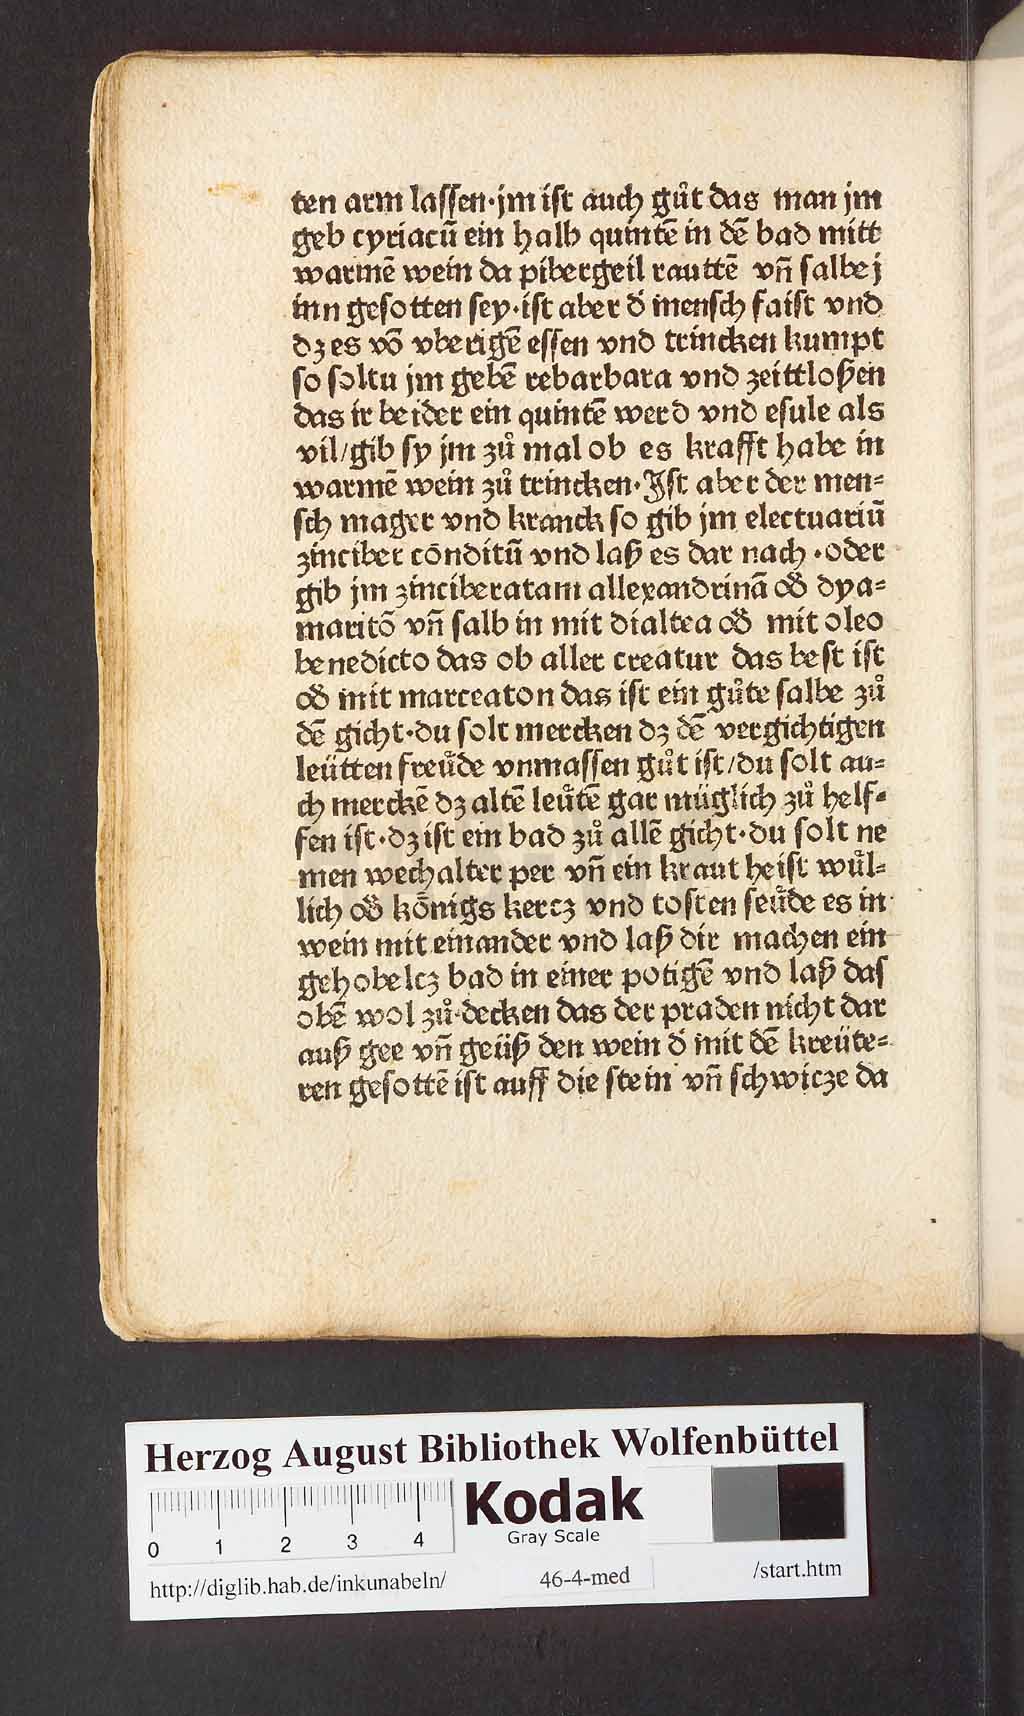 ten arm lassen·jm ist auch gůt das man jm
geb cyriacū ein halb quintē in dē bad mitt
warmē wein da pibergeil rauttē vn̄ salbe j
inn gesotten sey·ist aber d̕ mensch faist vnd
dz es vō vberigē essen vnd trincken kumpt
so soltu jm gebē rebarbara vnd zeittloßen
das ir beider ein quintē werd vnd esule als
vil/gib sy jm zů mal ob es krafft habe in
warmē wein zů trincken·Jst aber der men=
sch mager vnd kranck so gib jm electuariū
zinciber cōnditū vnd laß es dar nach·oder
gib jm zinciberatam allexandrinā od̕ dya=
maritō vn̄ salb in mit dialtea od̕ mit oleo
benedicto das ob aller creatur das best ist
od̕ mit marceaton das ist ein gůte salbe zů
dē gicht·du solt mercken dz dē vergichtigen
leütten freůde vnmassen gůt ist/du solt au=
ch merckē dz altē leůtē gar müglich zů helf=
fen ist·dz ist ein bad zů allē gicht·du solt ne
men wechalter per vn̄ ein kraut heist wůl=
lich od̕ kōnigs kercz vnd tosten seůde es in
wein mit einander vnd laß dir machen ein
gehobelcz bad in einer potigē vnd laß das
obē wol zů·decken das der praden nicht dar
auß gee vn̄ geüß den wein d̕ mit dē kreüte=
ren gesottē ist auff die stein vn̄ schwicze da
Herzog August Bibliothek Wolfenbüttel
0 1 2 3 4
Kodak
Gray Scale
http://diglib.hab.de/inkunabeln/ 46-4-med /start.htm